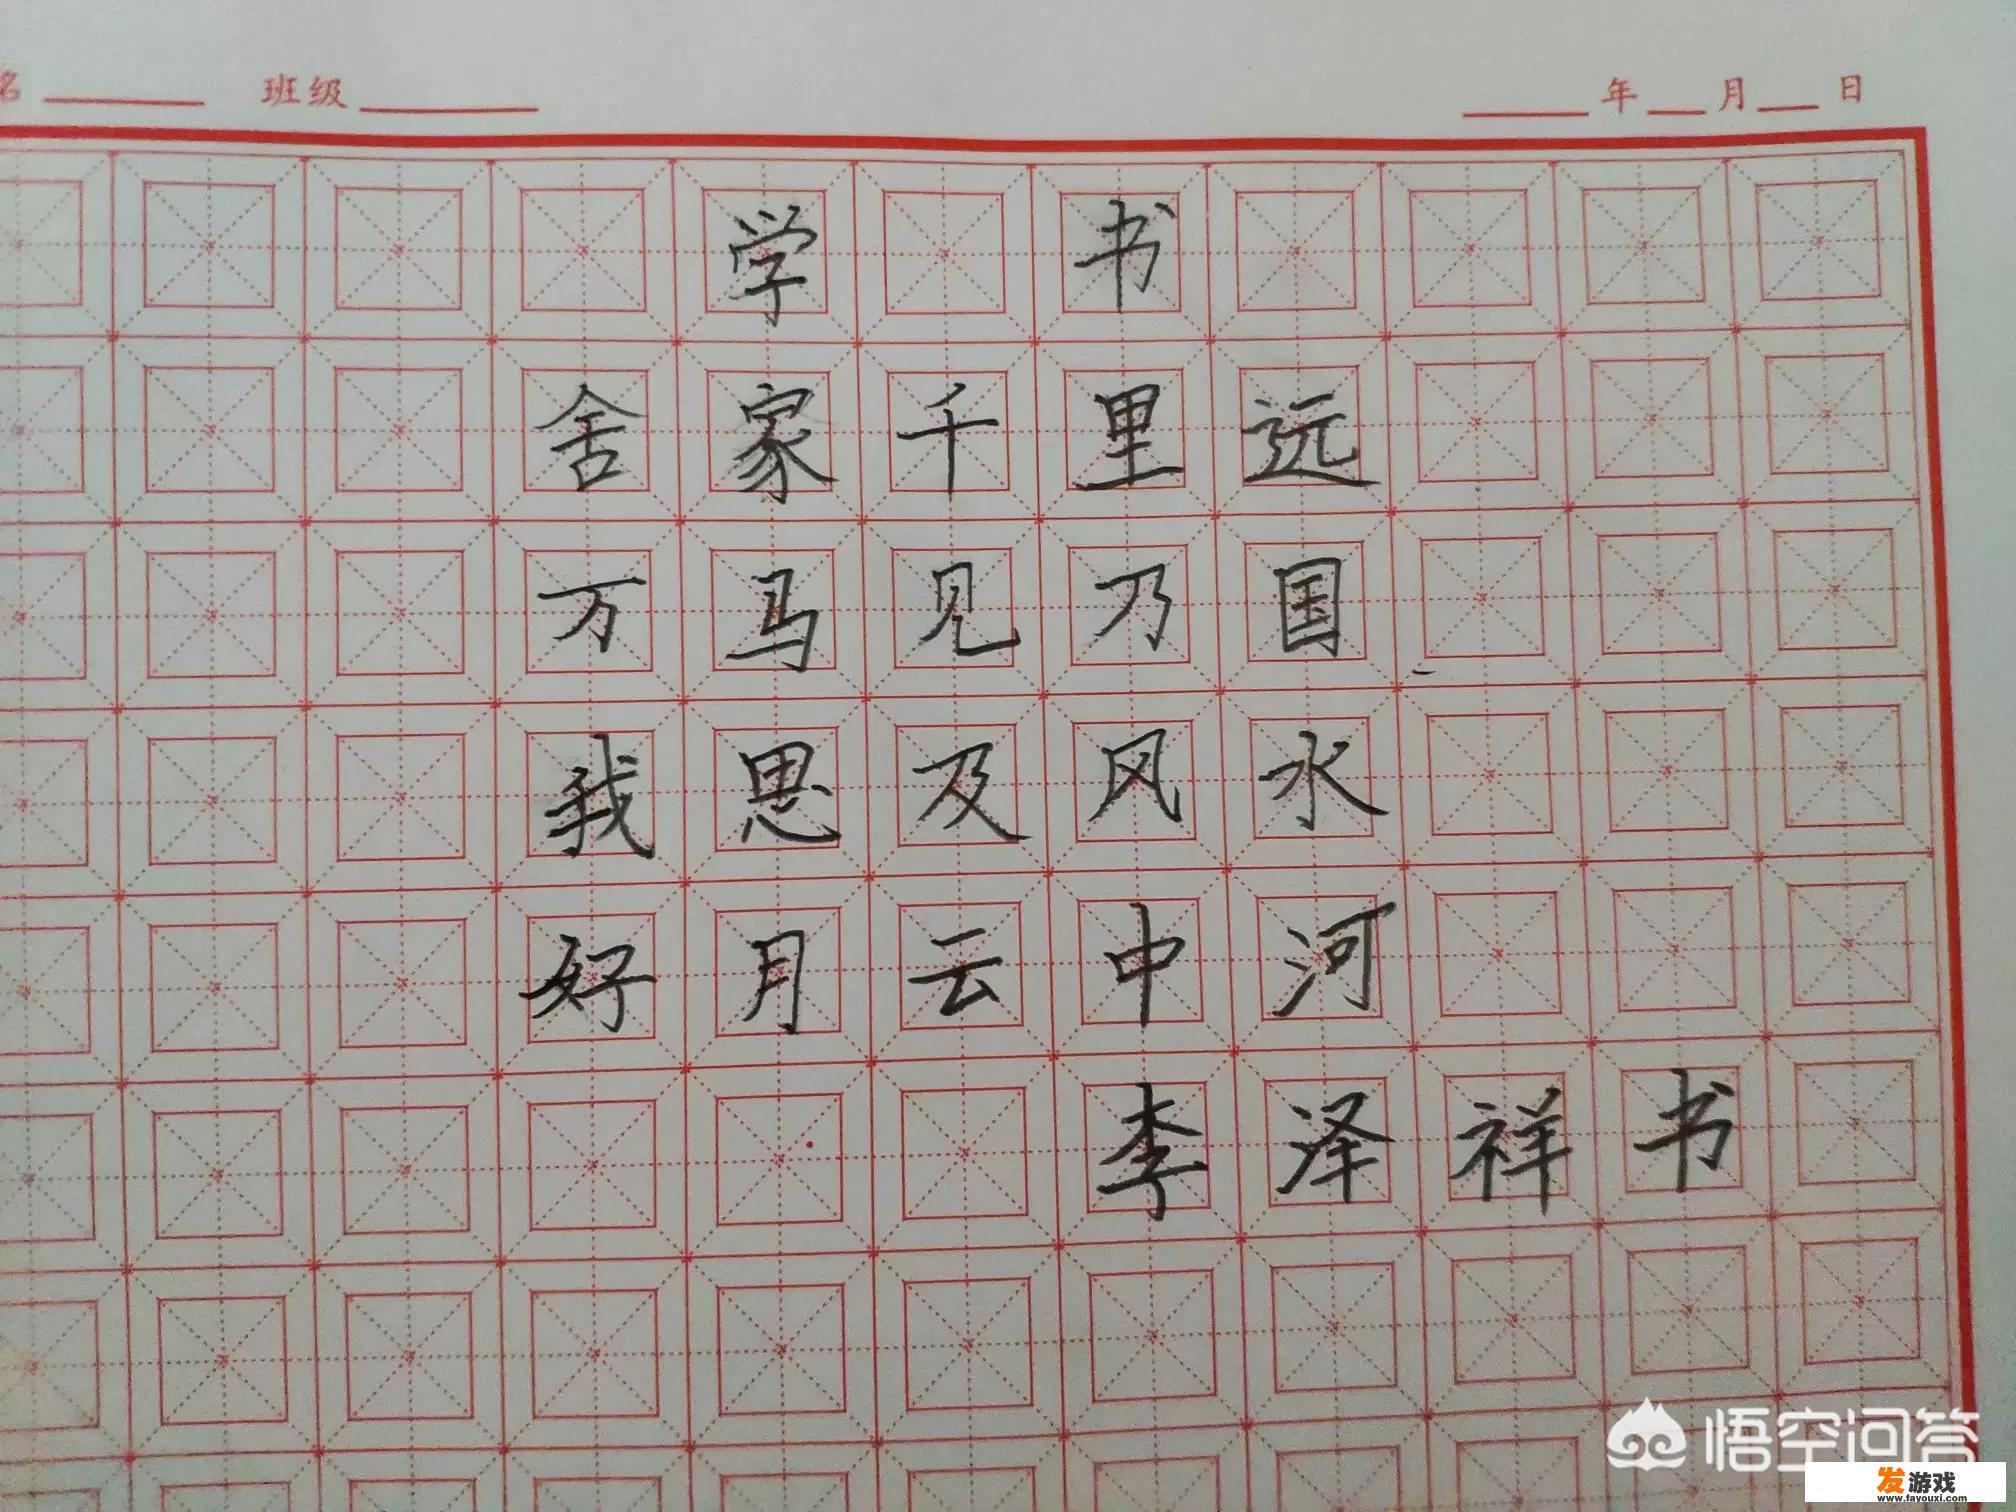 名 班级 年 月 日
学 书
舍家千里远
万马见乃国
我思及风水
好月云中河
李泽祥书
悟空问答
发游戏
www.fayouxi.com